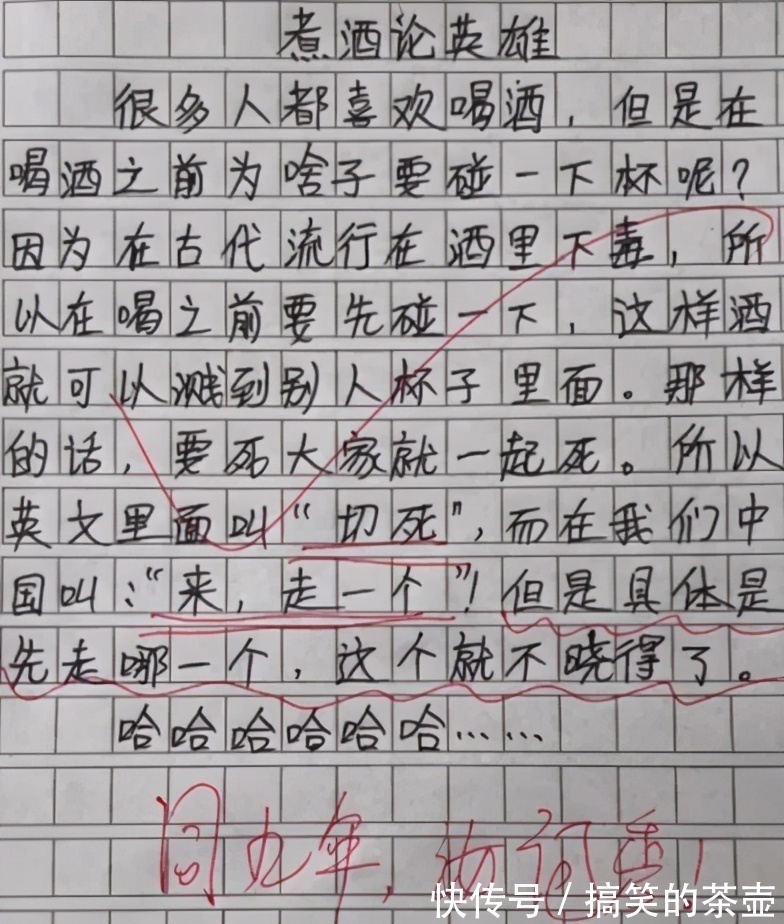 煮酒论英雄
很多人都喜欢喝酒，但是在
喝酒之前为啥子要碰一下杯呢？
因为在古代流行在酒里下毒，所
以在喝之前要先碰一下，这样酒
就可以溅到别人杯子里面。那样
的话，要死大家就一起死。所以
英文里面叫“切死”，而在我们中
国叫：“来，走一个”！但是具体是
先走哪一个，这个就不晓得了。
哈哈哈哈哈哈……
同九年，汝何秀！
快传号 / 搞笑的茶壶